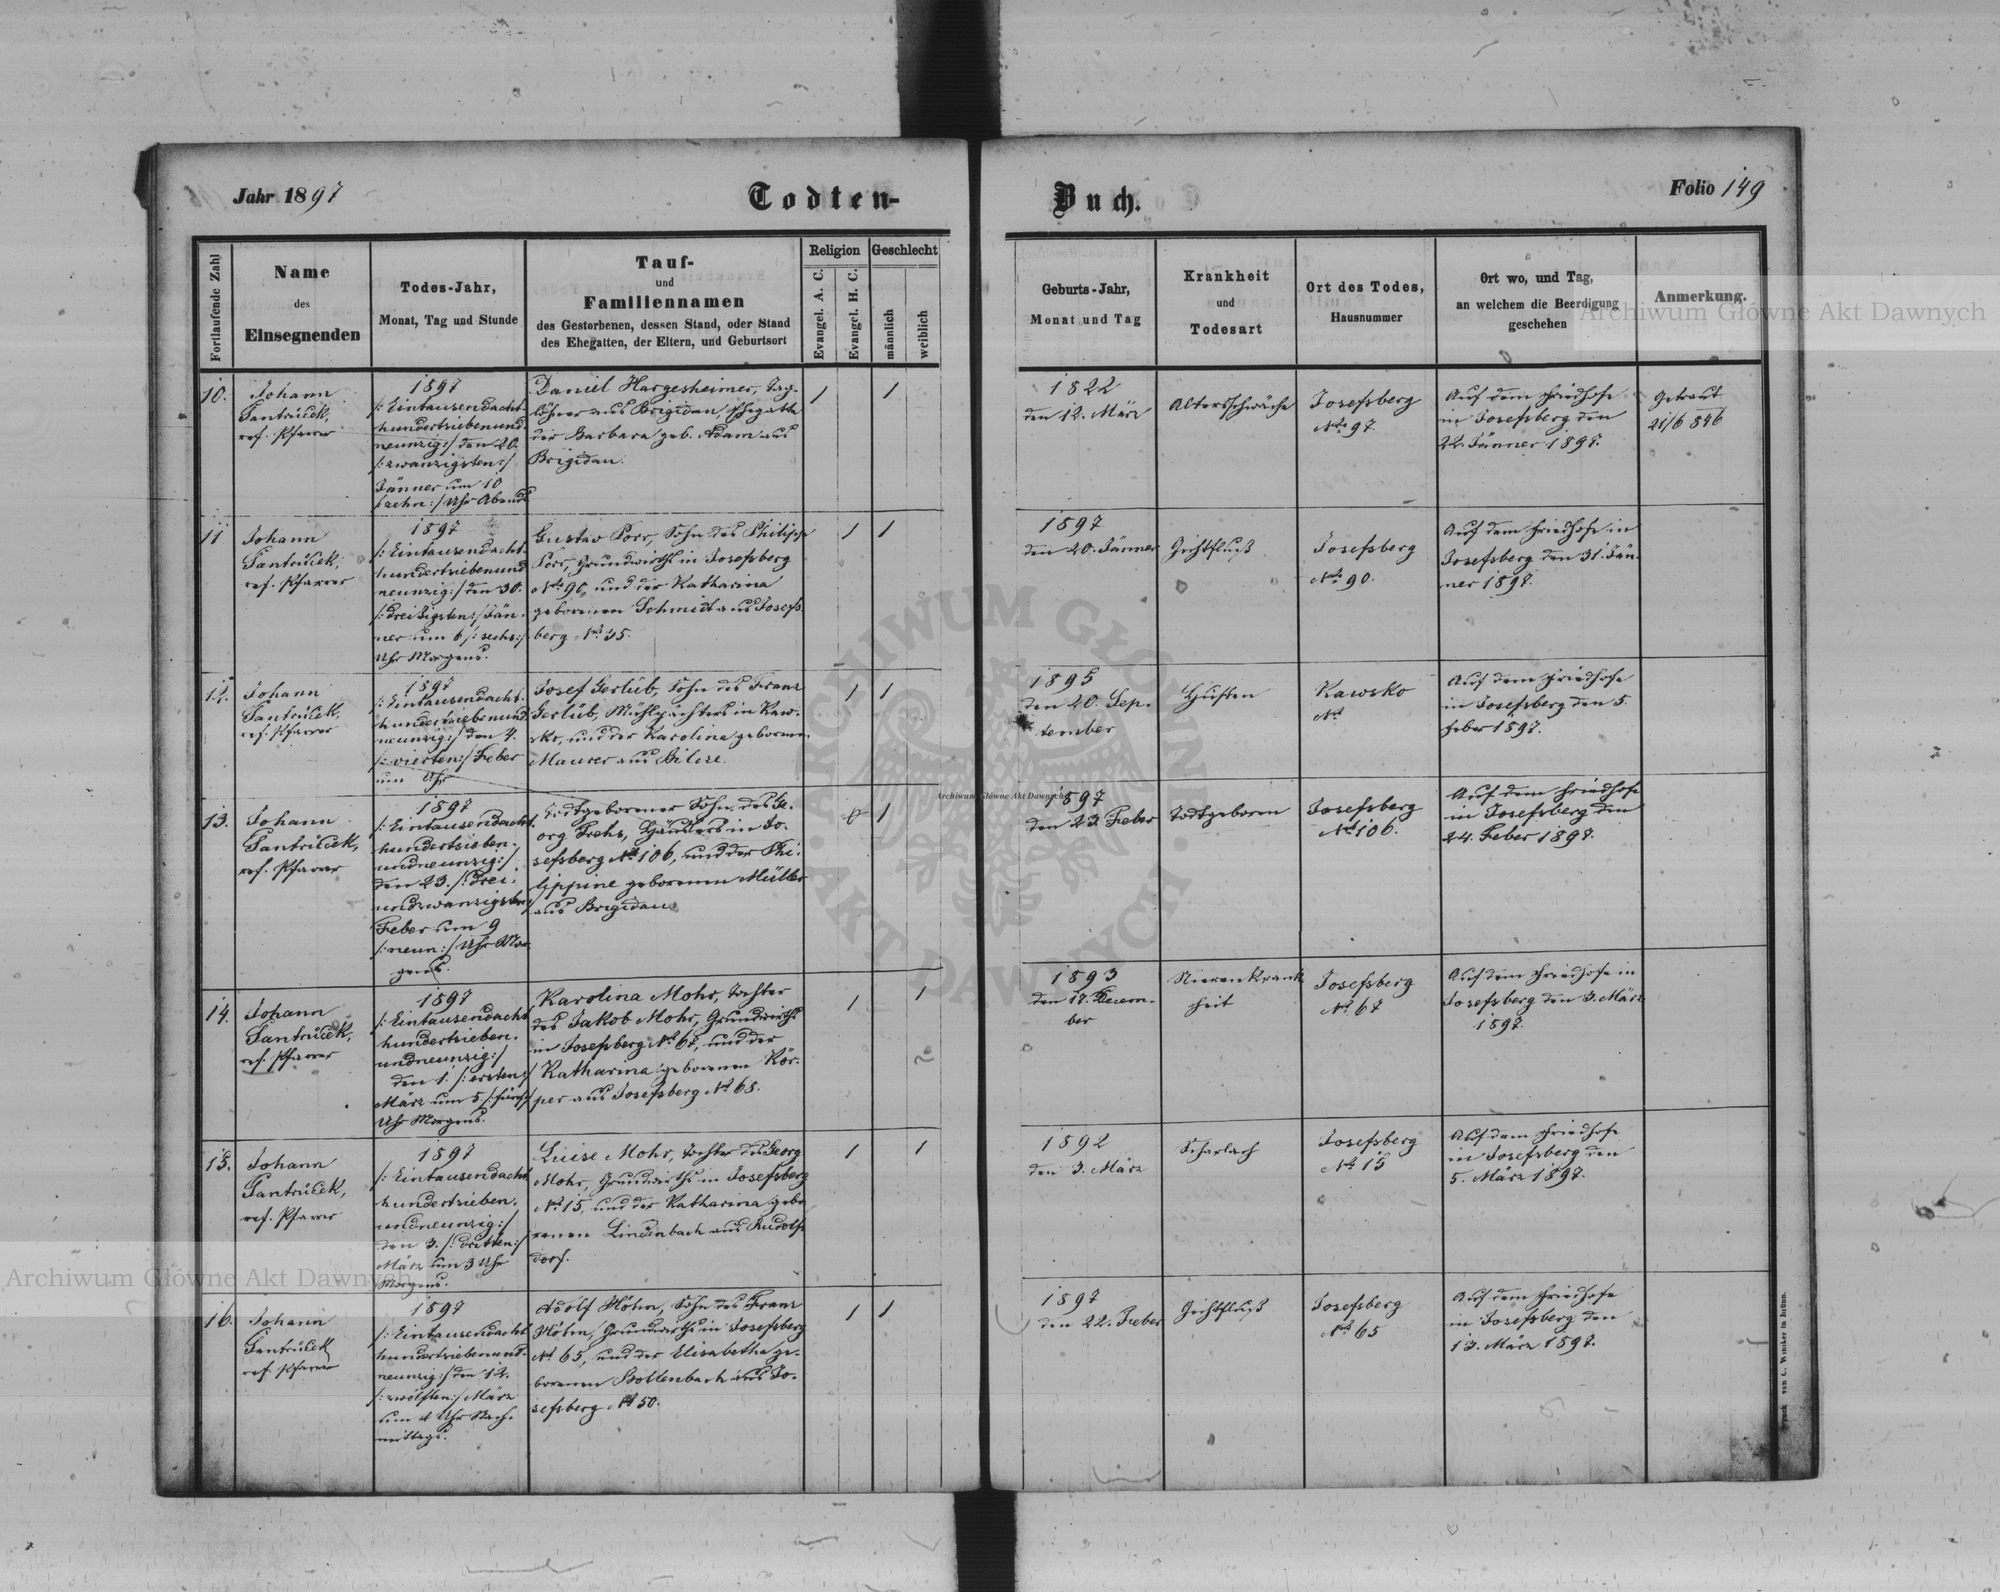 Jahr 1897
Todten-
Buch.
Folio 149
Fortlaufende Zahl
Name
des
Einsegnenden
Todes-Jahr,
Monat, Tag und Stunde
Tauf-
und
Familiennamen
des Gestorbenen, dessen Stand, oder Stand
des Ehegatten, der Eltern, und Geburtsort
Religion
Evangel. A. C.
Evangel. H. C.
Geschlecht
männlich
weiblich
Geburts-Jahr,
Monat und Tag
Krankheit
und
Todesart
Ort des Todes,
Hausnummer
Ort wo, und Tag,
an welchem die Beerdigung
geschehen
Anmerkung.
10.
Johann
ref. Pfarrer
1897
/:Eintausendacht-
hundertsiebenund-
neunzig:/ den 20.
/:zwanzigsten:/
Jänner um 10
/:zehn:/ Uhr Abends
Daniel Hargesheimer, Tag-
löhner aus Brigidau, Ehegatte
der Barbara geb. Adam aus
Brigidau.
1
1
1822
den 12. März
Altersschwäche
Josefsberg
No 97.
Auf dem Friedhofe
in Josefsberg den
22. Jänner 1897.
Getraut
21/6 846
11
Johann
ref. Pfarrer
1897
/:Eintausendacht-
hundertsiebenund
neunzig:/ den 30.
/:dreißigsten:/ Jän-
ner um 6 /:sechs:/
Uhr Morgens.
Gustav Porr, Sohn des Philipp
Porr, Grundwirths in Josefsberg
No 90, und der Katharina
geborenen Schmidt aus Josefs-
berg No 35.
1
1
1897
den 20. Jänner
Gichtfluß
Josefsberg
No 90.
Auf dem Friedhofe in
Josefsberg den 31. Jän-
ner 1897.
12.
Johann
ref. Pfarrer
1897
/:Eintausendacht-
hundertsiebenund
neunzig:/ den 4.
/:vierten:/ Feber
um Uhr
Josef Gerlüb, Sohn des Franz
Gerlüb, Mühlpächters in Kaw-
sko, und der Karolina geborenen
Maurer aus Bilcze.
1
1
1895
den 20. Sep-
tember
Husten
Kawsko
No
Auf dem Friedhofe
in Josefsberg den 5.
Feber 1897.
13.
Johann
ref. Pfarrer
1897
/:Eintausendacht-
hundertsieben-
undneunzig:/
den 23. /:drei-
undzwanzigsten:/
Feber um 9
/:neun:/ Uhr Mor-
gens.
Todtgeborener Sohn des Ge-
org Frehs, Häuslers in Jo-
sefsberg No 106, und der Phi-
lippine geborenen Müller
aus Brigidau.
1
1897
den 23. Feber
Todtgeboren
Josefsberg
No 106.
Auf dem Friedhofe
in Josefsberg den
24. Feber 1897.
14.
Johann
ref. Pfarrer
1897
/:Eintausendacht
hundertsieben-
undneunzig:/
den 1. /:ersten:/
März um 5 /:fünf:/
Uhr Morgens.
Karolina Mohr, Tochter
des Jakob Mohr, Grundwirths
in Josefsberg No 67, und der
Katharina geborenen Kör-
per aus Josefsberg No 68.
1
1
1893
den 17. Dezem-
ber
Nierenkrank
heit
Josefsberg
No 67
Auf dem Friedhofe in
Josefsberg den 3. März
1897.
15.
Johann
ref. Pfarrer
1897
/:Eintausendacht
hundertsieben-
undneunzig:/
den 3. /:dritten:/
März um 3 Uhr
Morgens.
Luise Mohr, Tochter des Georg
Mohr, Grundwirths in Josefsberg
No 15, und der Katharina gebo
renen Lindenbach aus Rudolfs
dorf.
1
1
1892
den 3. März
Scharlach
Josefsberg
No 15
Auf dem Friedhofe
in Josefsberg den
5. März 1897.
16.
Johann
ref. Pfarrer
1897
/:Eintausendacht
hundertsiebenund-
neunzig:/ den 12.
/:zwölften:/ März
um Uhr Nach-
mittags.
Adolf Höhn, Sohn des Franz
Höhn, Grundwirths in Josefsberg
No 65, und der Elisabetha ge-
borenen Bollenbach aus Jo-
sefsberg No 50.
1
1
1897
den 22. Feber
Gichtfluß
Josefsberg
No 65
Auf dem Friedhofe
in Josefsberg den
13. März 1897.
Archiwum Główne Akt Dawnych
ARCHIWUM GŁÓWNE
AKT DAWNYCH
Archiwum Główne Akt Dawnych
Archiwum Główne Akt Dawnych